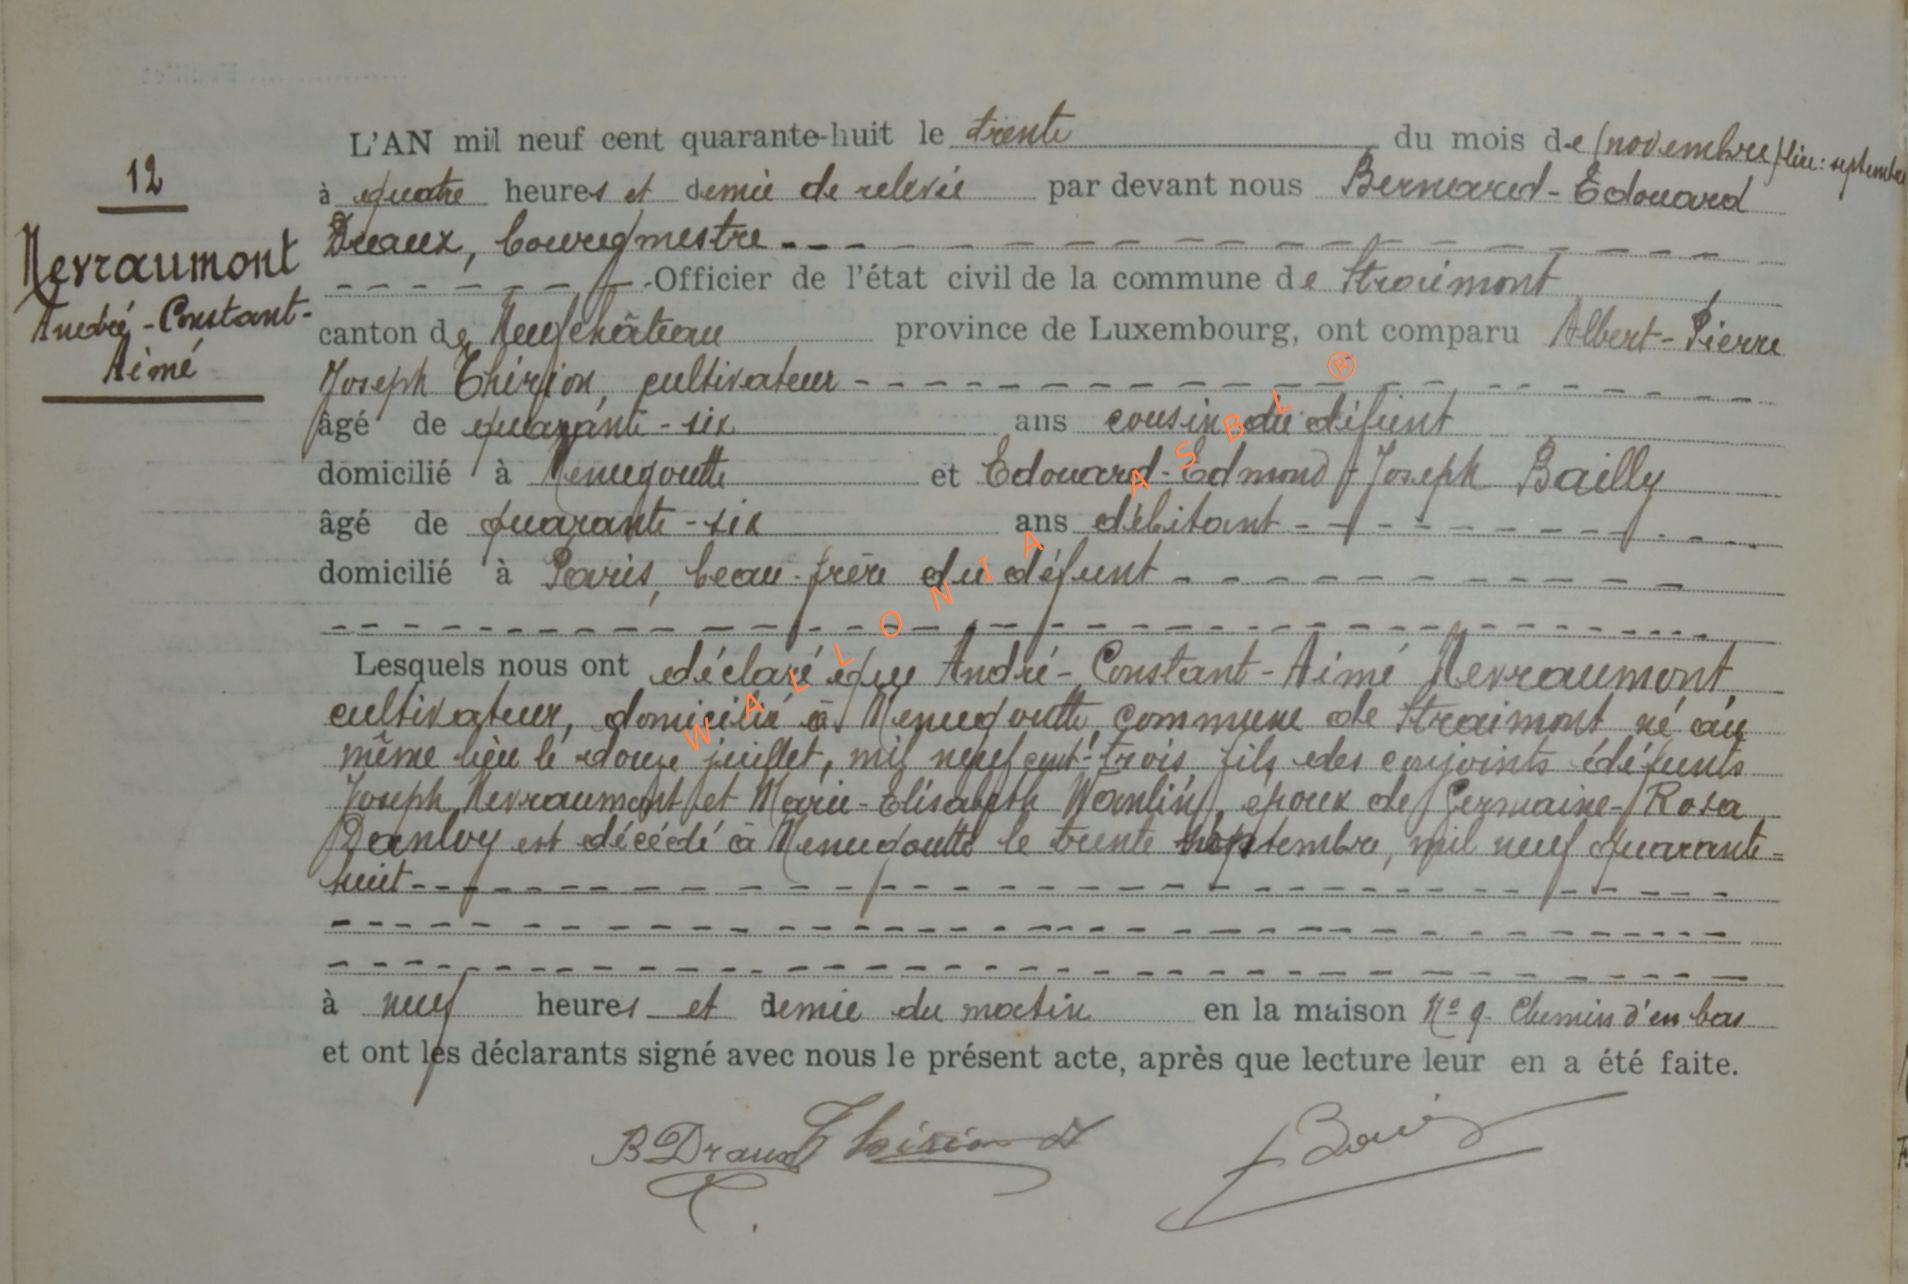 12
Nevraumont
André-Constant-
Aimé
L'AN mil neuf cent quarante-huit le trente du mois de (novembre) lire: septembre
à quatre heures et demie de relevée par devant nous Bernard-Edouard
Draux, bourgmestre
Officier de l'état civil de la commune de Straimont
canton de Neufchâteau province de Luxembourg, ont comparu Albert-Pierre
Joseph Thirion, cultivateur
âgé de quarante-six ans cousin du défunt
domicilié à Menugoutte et Edouard-Edmond-Joseph Bailly
âgé de quarante-six ans débitant
domicilié à Paris, beau-frère du défunt
Lesquels nous ont déclaré que André-Constant-Aimé Nevraumont,
cultivateur, domicilié à Menugoutte, commune de Straimont né au
même lieu le douze juillet, mil neuf cent-trois, fils des conjoints défunts
Joseph Nevraumont et Marie-Elisabeth Wanlin, époux de Germaine-Rosa
Danloy est décédé à Menugoutte le trente septembre, mil neuf quarante-
huit
à neuf heures et demie du matin en la maison N° 9 Chemin d'en bas
et ont les déclarants signé avec nous le présent acte, après que lecture leur en a été faite.
B Draux Thirion A
WALLONIA ASBL ®